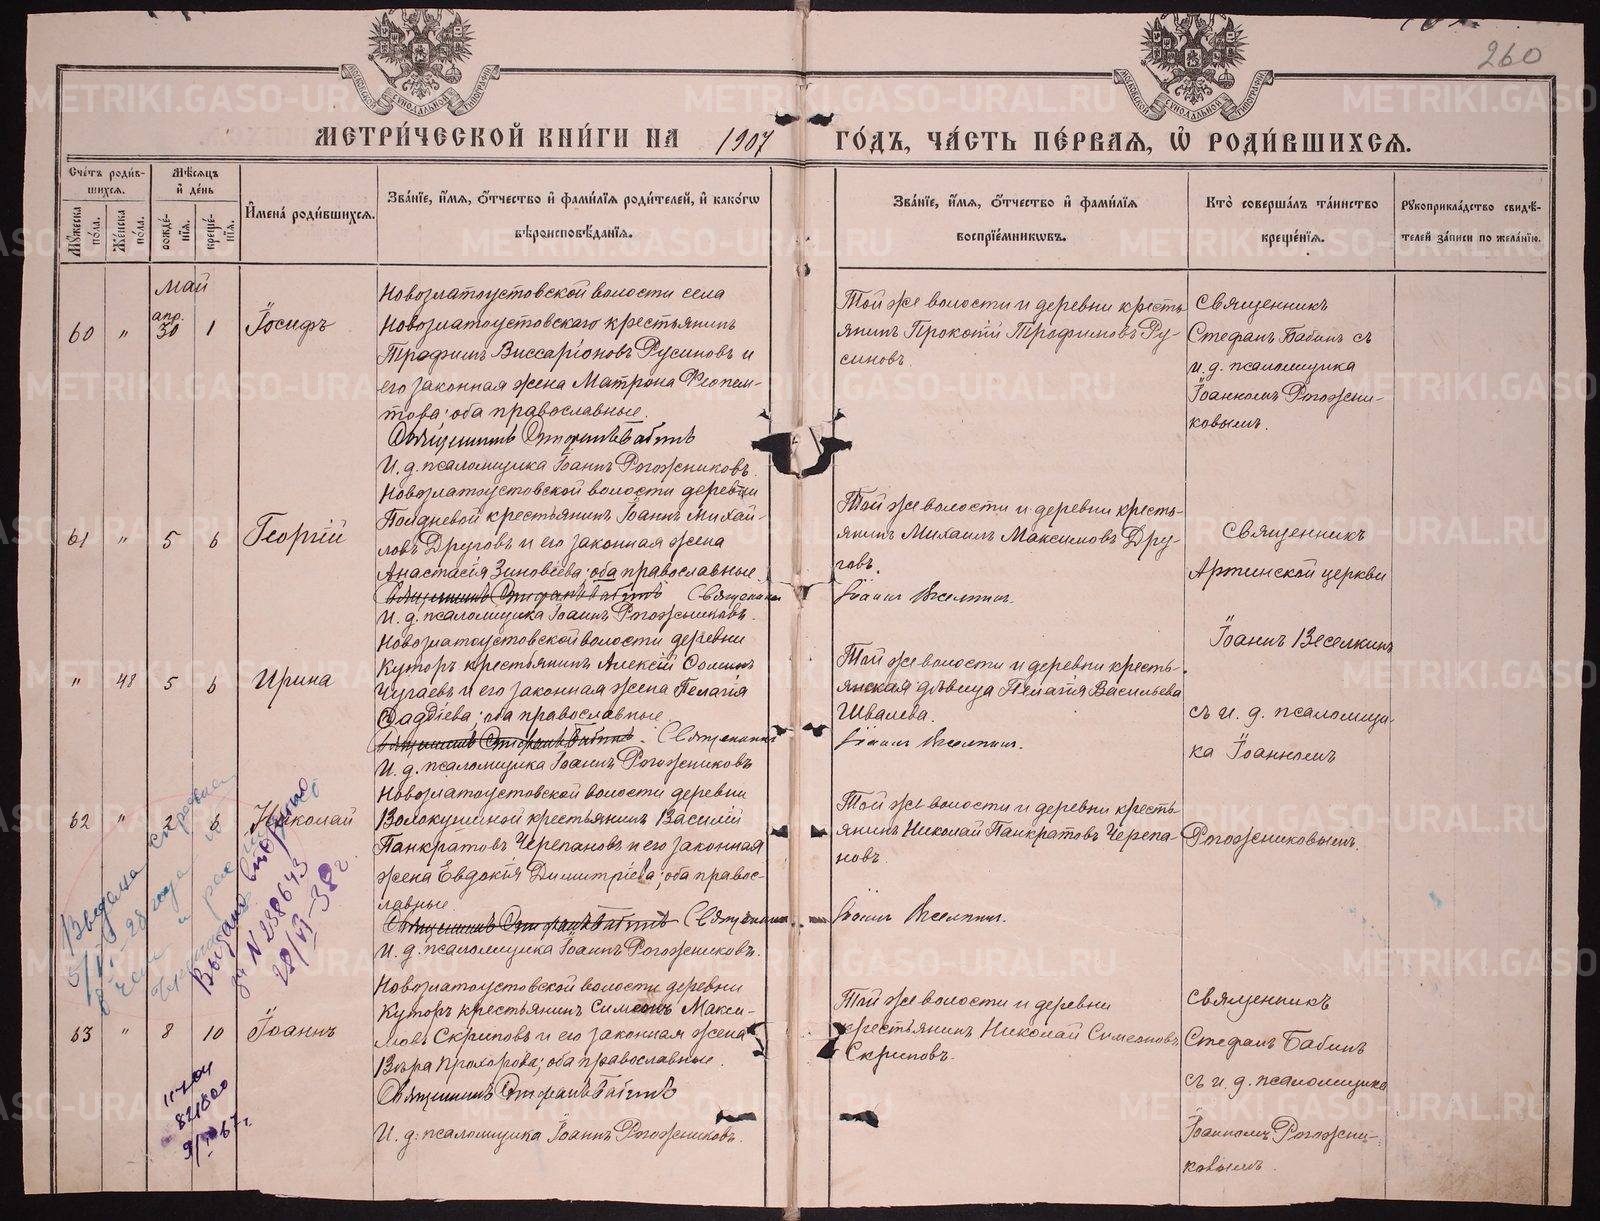 260
МЕТРИ́ЧЕСКОЙ КНИ́ГИ НА 1907 ГО́ДЪ, ЧА́СТЬ ПЕ́РВАѦ, Ѡ҆ РОДИ́ВШИХСѦ.
Сче́тъ роди́в-
шихсѧ.
Мꙋ́жеска по́ла.
Же́нска по́ла.
Мѣ́сѧцъ и҆ де́нь
рожде́-
нїѧ.
креще́-
нїѧ.
И҆мена̀ роди́вшихсѧ.
Зва́нїе, и҆́мѧ, ѻ҆́тчество и҆ фами́лїѧ роди́телей, и҆ како́гѡ
вѣроисповѣ́данїѧ.
Зва́нїе, и҆́мѧ, ѻ҆́тчество и҆ фами́лїѧ
воспрїе́мникѡвъ.
Кто̀ соверша́лъ та́инство
креще́нїѧ.
Рꙋкоприкла́дство свидѣ́-
телей за́писи по жела́нїю.
Май
60 " апр. 30 1 Іосифъ
Новозлатоустовской волости села
Новозлатоустовскаго крестьянинъ
Трофимъ Виссаріоновъ Русиновъ и
его законная жена Матрона Феопем-
това; оба православные.
Священникъ Стефанъ Бабинъ
И. д. псаломщика Іоаннъ Рогожниковъ.
Той же волости и деревни кресть
янинъ Прокопій Трофимовъ Ру-
синовъ.
Священникъ
Стефанъ Бабинъ съ
и. д. псаломщика
Іоанномъ Рогожни-
ковымъ.
61 " 5 6 Георгій
Новозлатоустовской волости деревни
Полдневой крестьянинъ Іоаннъ Михай-
ловъ Друговъ и его законная жена
Анастасія Зиновіева; оба православные.
Священникъ Стефанъ Бабинъ Священникъ
И. д. псаломщика Іоаннъ Рогожниковъ.
Той же волости и деревни кресть-
янинъ Михаилъ Максимовъ Дру-
говъ.
Іоаннъ Веселкинъ.
Священникъ
Артинской церкви
Іоаннъ Веселкинъ
съ и. д. псаломщи-
ка Іоанномъ
Рогожниковымъ.
" 48 5 6 Ирина
Новозлатоустовской волости деревни
Куторъ крестьянинъ Алексій
Чугаевъ и его законная жена Пелагія
Фаддіева; оба православные.
Священникъ Стефанъ Бабинъ. Священникъ
И. д. псаломщика Іоаннъ Рогожниковъ
Той же волости и деревни кресть-
янская дѣвица Пелагія Васильева
Швалева.
Іоаннъ Веселкинъ.
62 " 2 6 Николай
Новозлатоустовской волости деревни
Волокушиной крестьянинъ Василій
Панкратовъ Черепановъ и его законная
жена Евдокія Димитріева; оба правос-
лавные
Священникъ Стефанъ Бабинъ Священникъ
И. д. псаломщика Іоаннъ Рогожниковъ.
Той же волости и деревни кресть-
янинъ Николай Панкратовъ Черепа-
новъ.
Іоаннъ Веселкинъ.
Выдана справка
28 года
Выдано вторично
за N 238643
28/VI-38 г.
63 " 8 10 Іоаннъ
Новозлатоустовской волости деревни
Куторъ крестьянинъ Симеонъ Макси-
мовъ Скриповъ и его законная жена
Вѣра Прохорова; оба православные.
Священникъ Стефанъ Бабинъ
И. д. псаломщика Іоаннъ Рогожниковъ.
Той же волости и деревни
крестьянинъ Николай Симеоновъ
Скриповъ.
Священникъ
Стефанъ Бабинъ
съ и. д. псаломщика
Іоанномъ Рогожни-
ковымъ.
METRIKI.GASO-URAL.RU